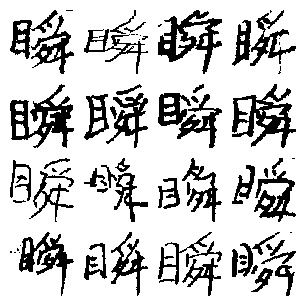 瞬瞬瞬瞬
瞬瞬瞬瞬
瞬瞬瞬瞬
瞬瞬瞬瞬